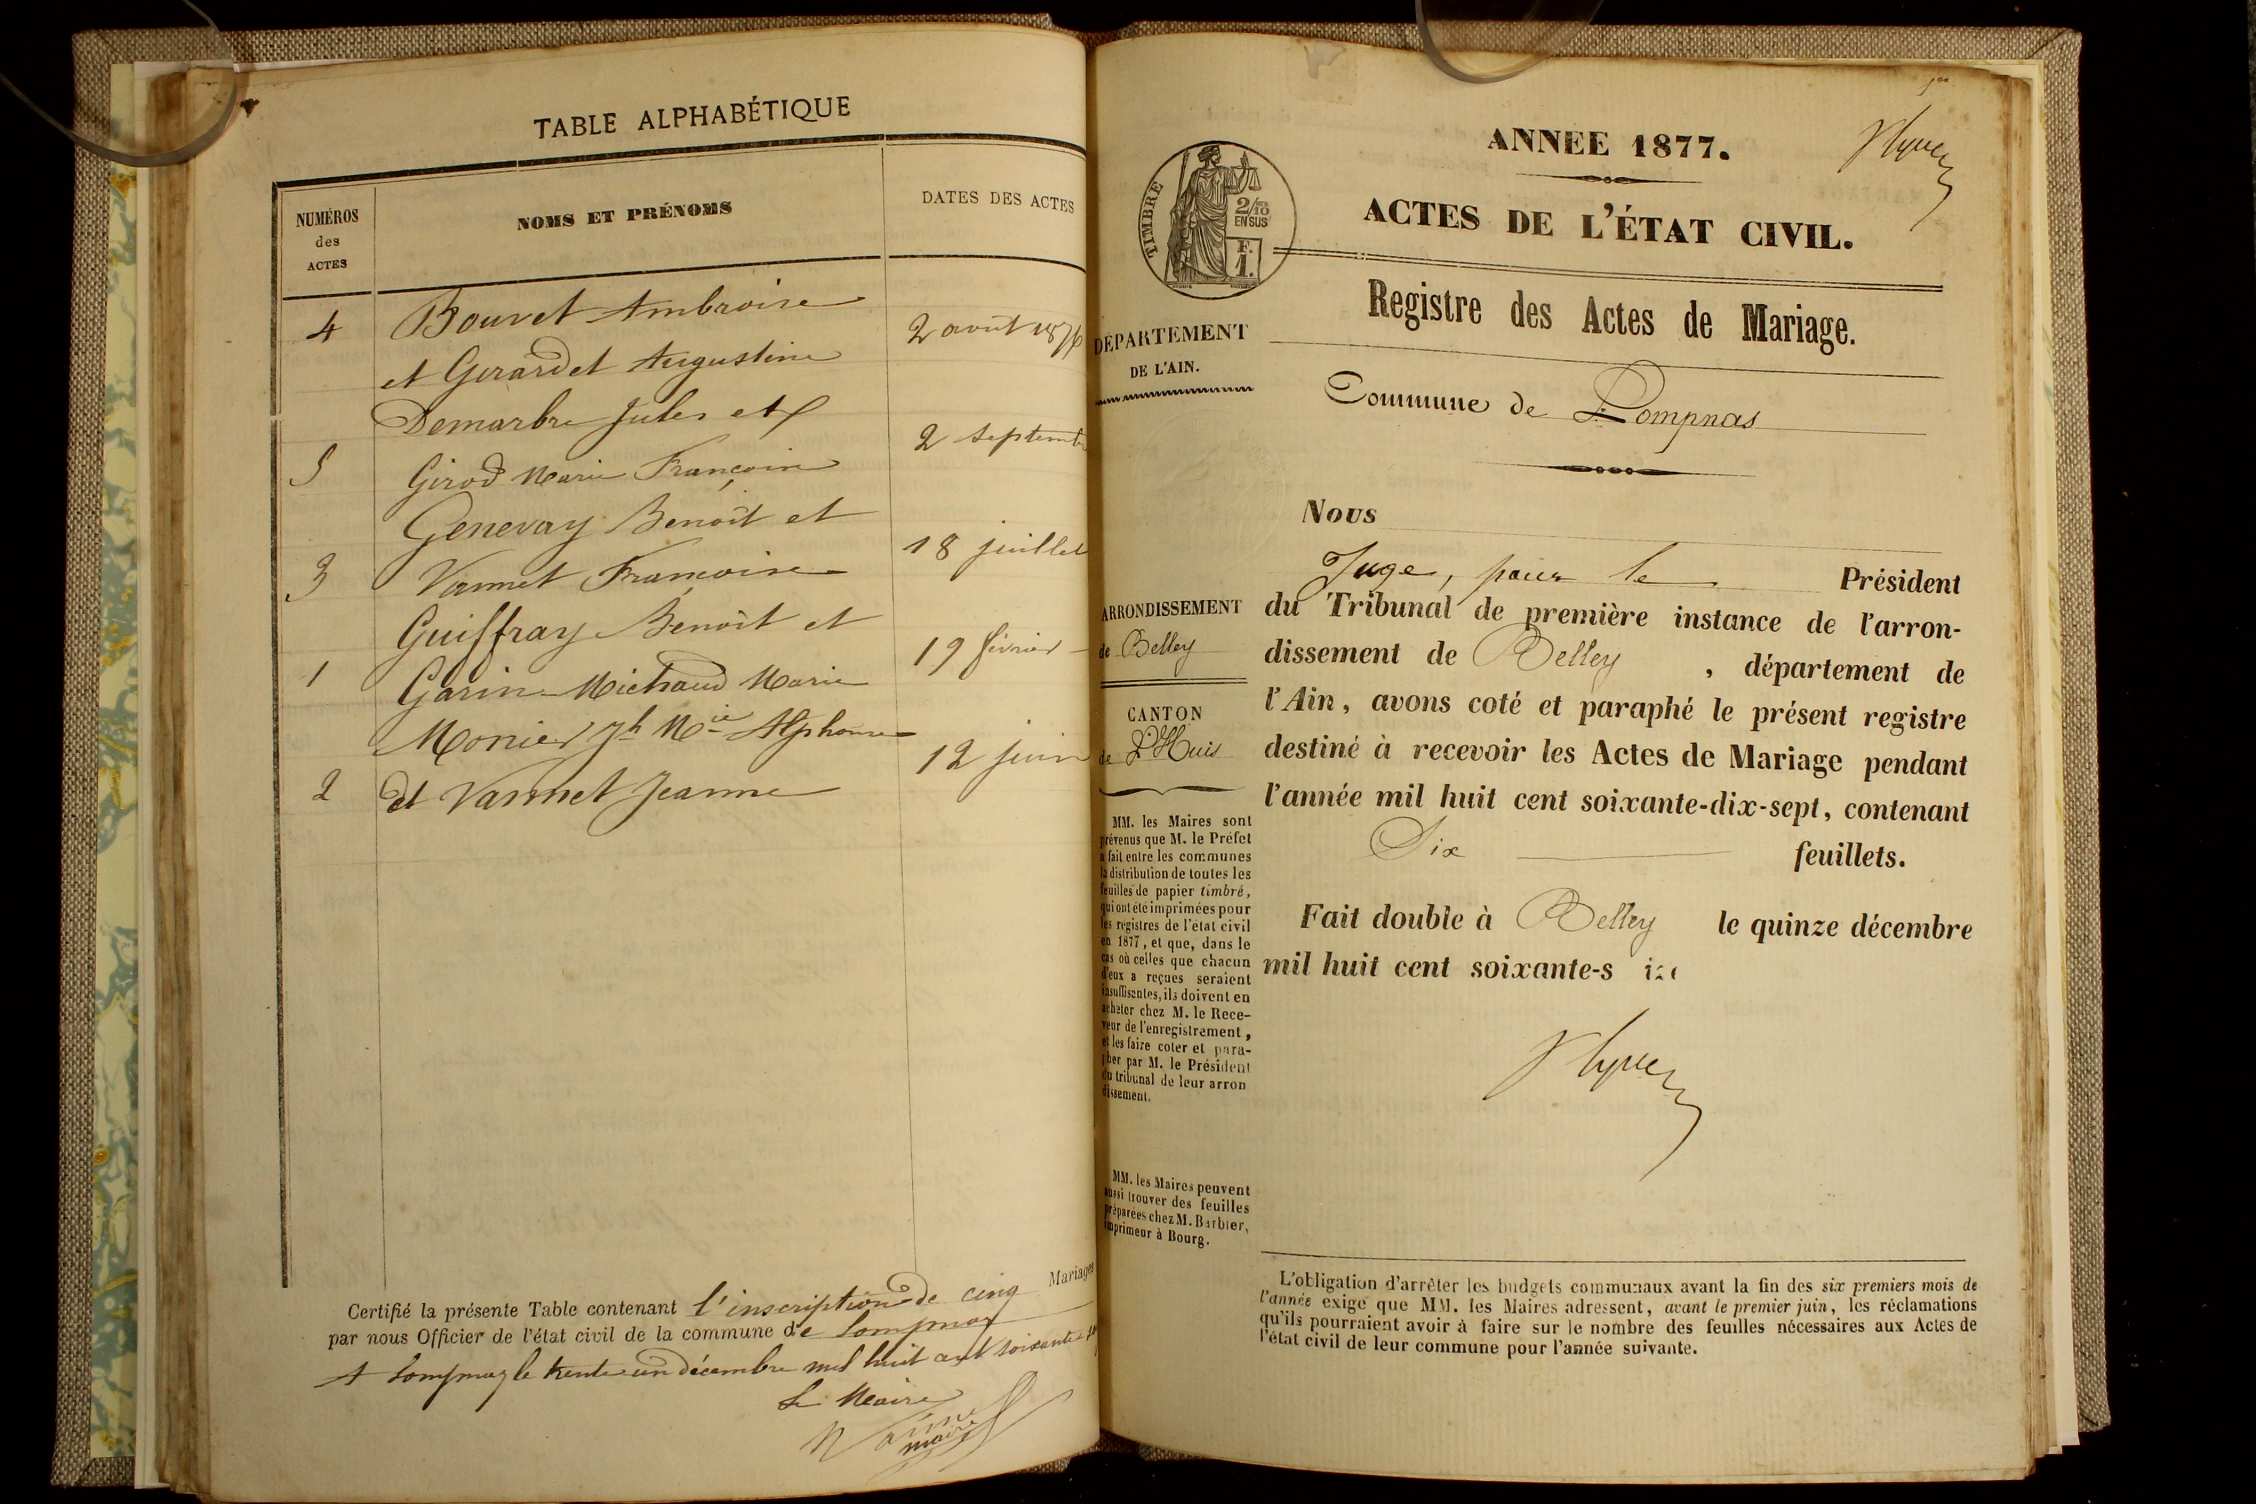 TABLE ALPHABÉTIQUE
NUMÉROS
des
ACTES
NOMS ET PRÉNOMS
DATES DES ACTES
4 Bouvet Ambroise 2 août 1876
et Gerardet Augustine
Demarbre Jules et 2 septembre
5 Girod Marie Françoise
Genevay Benoît et 18 juillet
3 Vannet Françoise
Guiffray Benoît et 19 février
1 Garin-Michaud Marie
Monier Jh Mie Alphonse 12 juin
2 et Vannet Jeanne
Certifié la présente Table contenant l'inscription de cinq Mariages
par nous Officier de l'état civil de la commune de Lompnaz
A Lompnaz le trente un décembre mil huit cent soixante
Le Maire
maire
1er
ANNÉE 1877.
ACTES DE L'ÉTAT CIVIL.
TIMBRE
2/10
EN SUS
F.
1.
Registre des Actes de Mariage.
DÉPARTEMENT
DE L'AIN.
Commune de Lompnas
Nous
Juge, pour le Président
du Tribunal de première instance de l'arron-
dissement de Belley, département de
l'Ain, avons coté et paraphé le présent registre
destiné à recevoir les Actes de Mariage pendant
l'année mil huit cent soixante-dix-sept, contenant
Six feuillets.
Fait double à Belley le quinze décembre
mil huit cent soixante-s ize
ARRONDISSEMENT
de Belley
CANTON
de L'Huis
MM. les Maires sont
prévenus que M. le Préfet
a fait entre les communes
la distribution de toutes les
feuilles de papier timbré,
qui ont été imprimées pour
les registres de l'état civil
en 1877, et que, dans le
cas où celles que chacun
d'eux a reçues seraient
insuffisantes, ils doivent en
acheter chez M. le Rece-
veur de l'enregistrement,
et les faire coter et para-
pher par M. le Président
du tribunal de leur arron
dissement.
MM. les Maires peuvent
aussi trouver des feuilles
préparées chez M. Barbier,
imprimeur à Bourg.
L'obligation d'arrêter les budgets communaux avant la fin des six premiers mois de
l'année exige que MM. les Maires adressent, avant le premier juin, les réclamations
qu'ils pourraient avoir à faire sur le nombre des feuilles nécessaires aux Actes de
l'état civil de leur commune pour l'année suivante.